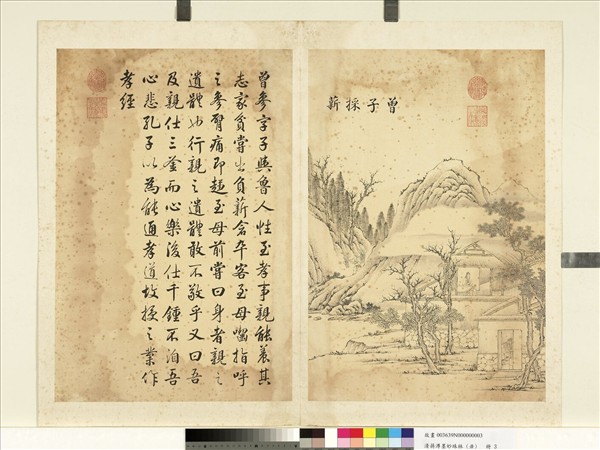 曾子採薪
曾參字子輿魯人性至孝事親能養其
志家貧嘗出負薪會卒客至母嚙指呼
之參臂痛即趨至母前嘗曰身者親之
遺體也行親之遺體敢不敬乎又曰吾
及親仕三釜而心樂後仕千鍾不洎吾
心悲孔子以為能通孝道故授之業作
孝經
故畫 003639N000000003
墨妙珠林 冊 3